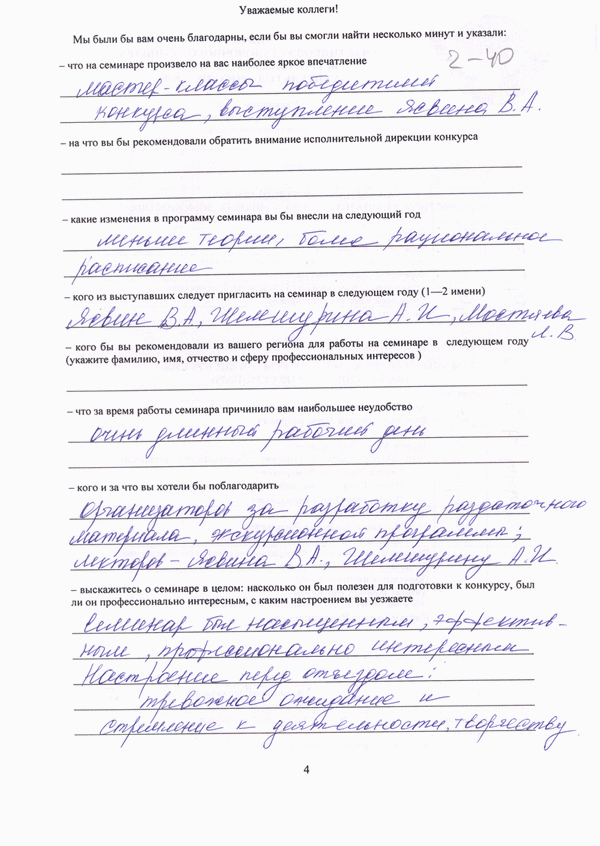 Уважаемые коллеги!
Мы были бы вам очень благодарны, если бы вы смогли найти несколько минут и указали:
– что на семинаре произвело на вас наиболее яркое впечатление
2-40
мастер-классы победителей
конкурса, выступление Ясвина В.А.
– на что вы бы рекомендовали обратить внимание исполнительной дирекции конкурса
– какие изменения в программу семинара вы бы внесли на следующий год
меньше теории, более рациональное
расписание
– кого из выступавших следует пригласить на семинар в следующем году (1—2 имени)
Ясвин В.А, Шемшурина А.И,
Л.В.
– кого бы вы рекомендовали из вашего региона для работы на семинаре в следующем году
(укажите фамилию, имя, отчество и сферу профессиональных интересов )
– что за время работы семинара причинило вам наибольшее неудобство
очень длинный рабочий день
– кого и за что вы хотели бы поблагодарить
Организаторов за разработку раздаточного
материала, экскурсионной программы;
лекторов – Ясвина В.А., Шемшурину А.И.
– выскажитесь о семинаре в целом: насколько он был полезен для подготовки к конкурсу, был
ли он профессионально интересным, с каким настроением вы уезжаете
Семинар был насыщенным, эффектив-
ным, профессионально интересным
Настроение перед отъездом:
тревожное ожидание и
стремление к деятельности, творчеству
4